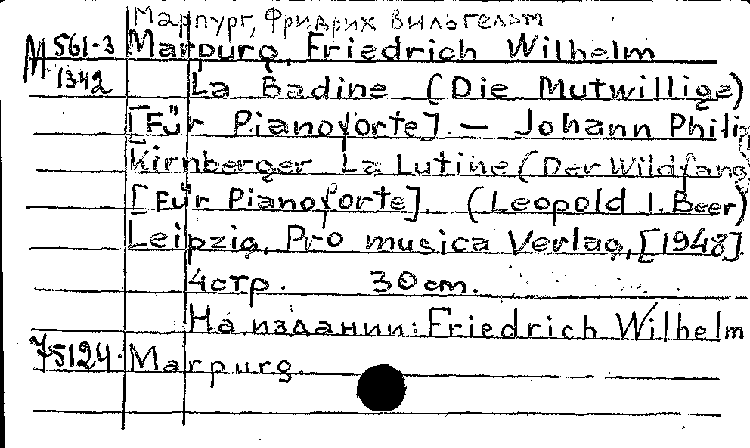 Марпург, Фридрих Вильгельм
М 561-3 Marpurg, Friedrich Wilhelm
1342 La Badine (Die Mutwillige)
[Für Pianoforte]. — Johann Philip
Kirnberger La Lutine (Der Wildfang)
[Für Pianoforte]. (Leopold J. Beer)
Leipzig, Pro musica Verlag, [1948].
4 стр. 30 cm.
На издании: Friedrich Wilhelm
75124. Marpurg.